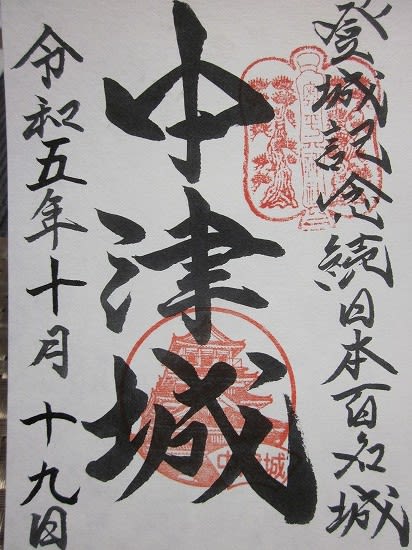 登城記念 続日本百名城
中津城
令和五年十月十九日